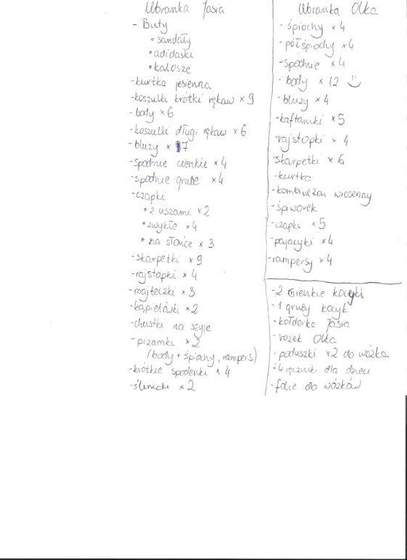 Ubranka Jasia
- Buty
• sandały
• adidaski
• kalosze
- kurtka jesienna
- koszulki krótki rękaw × 9
- body × 6
- koszulki długi rękaw × 6
- bluzy × 7
- spodnie cienkie × 4
- spodnie grube × 4
- czapki
• z uszami × 2
• zwykłe × 4
• na słońce × 3
- skarpetki × 9
- rajstopki × 4
- majteczki × 3
- kąpielówki × 2
- chustki na szyję
- piżamki × 2
/body + śpiochy, rampers)
- krótkie spodenki × 4
- śliniaki × 2
Ubranka Olka
- śpiochy × 4
- półśpiochy × 4
- spodnie × 4
- body × 12
- bluzy × 4
- kaftaniki × 5
rajstopki × 4
skarpetki × 6
- kurtka
- kombinezon wiosenny
- śpiworek
- czapki × 5
- pajacyki × 4
- rampersy × 4
- 2 cienkie kocyki
- 1 gruby kocyk
- kołderka Jasia
- rożek Olka
- poduszki × 2 do wózka
- 4 ręczniki dla dzieci
- folie do wózków